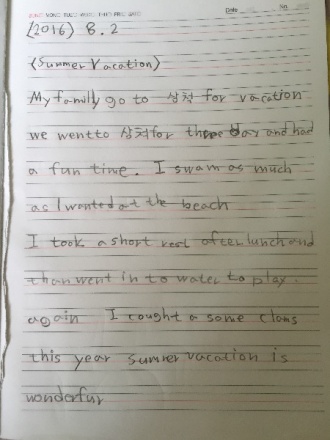 (2016) 8.2
(Summer Vacation)
My family go to 삼척 for vacation
we went to 삼척 for three day and had
a fun time. I swam as much
as I wanted at the beach
I took a short rest after lunch and
than went in to water to play.
again I cought a some clams
this year sumner vacation is
wonderfur